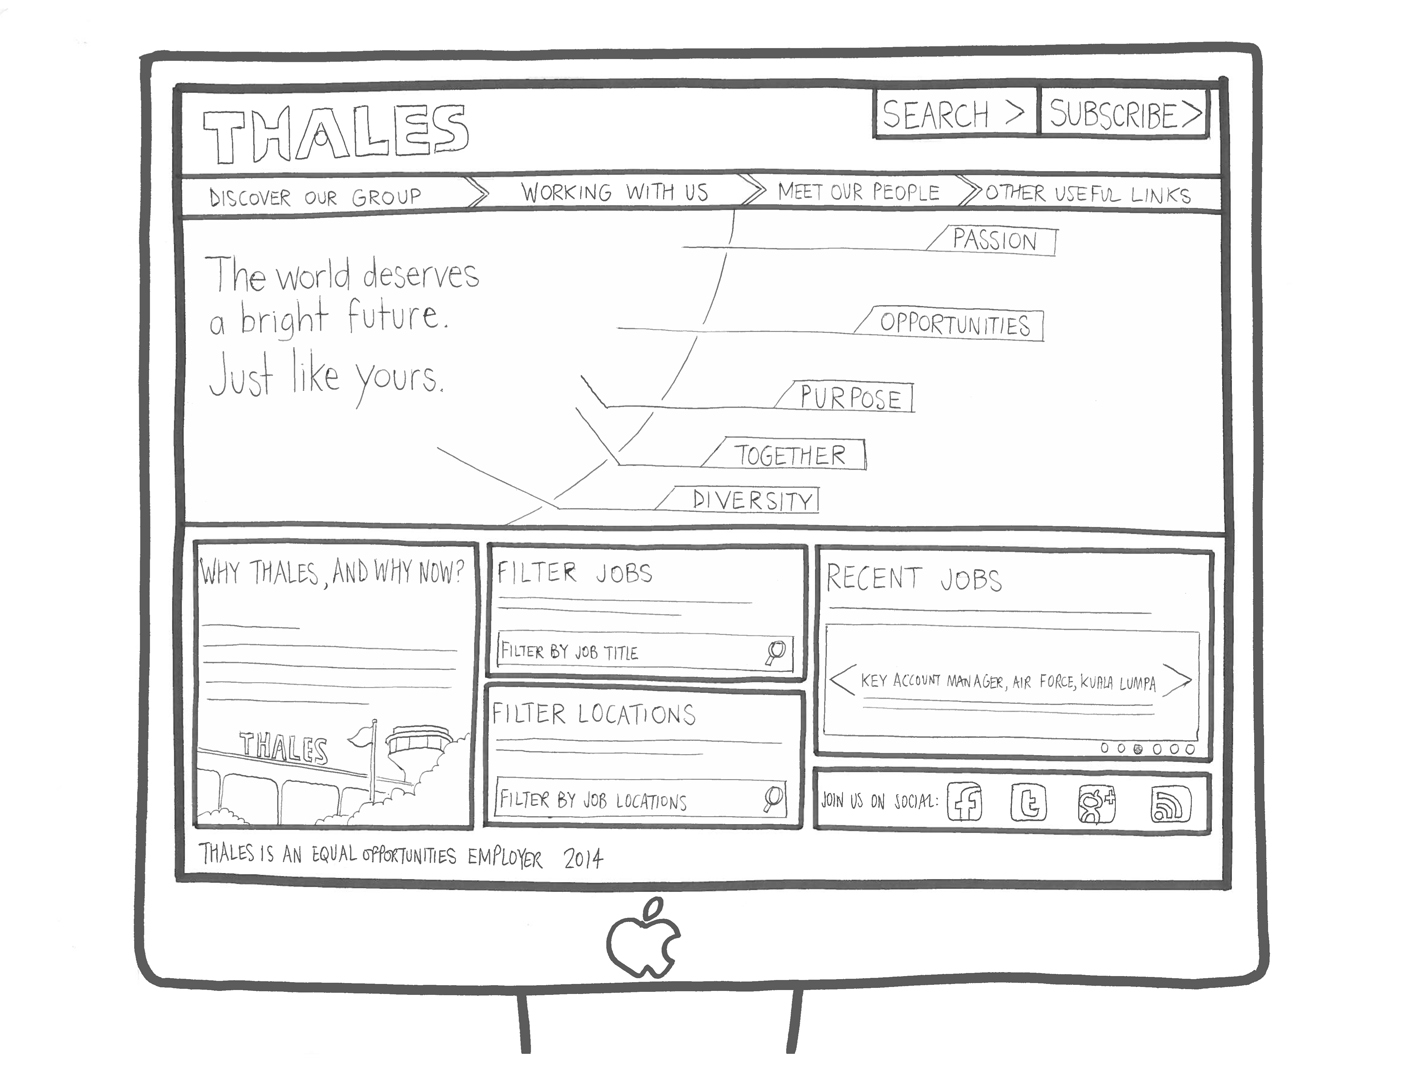 THALES
SEARCH >
SUBSCRIBE>
DISCOVER OUR GROUP
WORKING WITH US
MEET OUR PEOPLE
OTHER USEFUL LINKS
The world deserves
a bright future.
Just like yours.
PASSION
OPPORTUNITIES
PURPOSE
TOGETHER
DIVERSITY
WHY THALES, AND WHY NOW?
THALES
FILTER JOBS
FILTER BY JOB TITLE
FILTER LOCATIONS
FILTER BY JOB LOCATIONS
RECENT JOBS
KEY ACCOUNT MANAGER, AIR FORCE, KUALA LUMPA
JOIN US ON SOCIAL: f t g+
THALES IS AN EQUAL OPPORTUNITIES EMPLOYER 2014